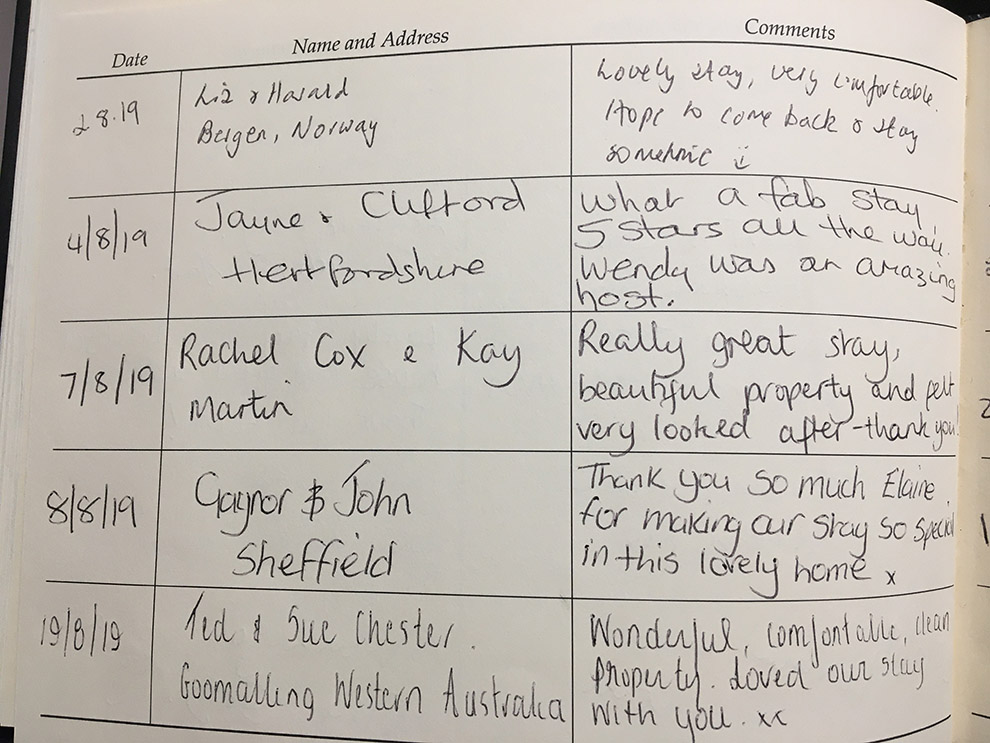 Date
Name and Address
Comments
2.8.19
Liz & Harald
Bergen, Norway
Lovely stay, very comfortable.
Hope to come back & stay
sometime
4/8/19
Jayne & Clifford
Hertfordshire
What a fab stay
5 stars all the way.
Wendy was an amazing
host.
7/8/19
Rachel Cox & Kay
Martin
Really great stay,
beautiful property and felt
very looked after - thank you!
8/8/19
Gaynor & John
Sheffield
Thank you so much Elaine
for making our stay so special
in this lovely home x
19/8/19
Ted & Sue Chester.
Goomalling Western Australia
Wonderful, comfortable, clean
property. Loved our stay
with you. xx